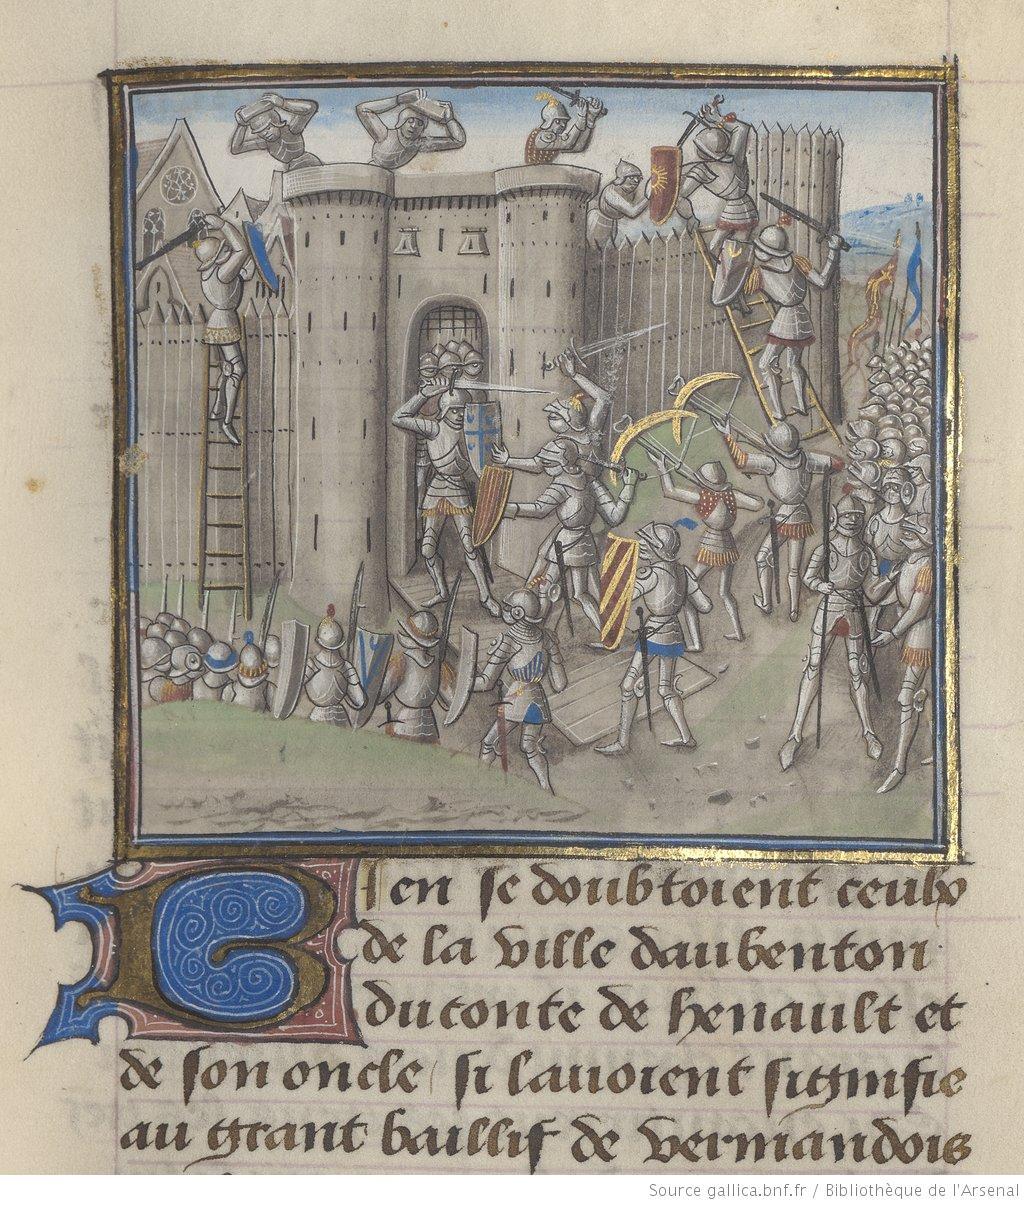 Bien se doubtoient ceulx
de la ville daubenton
du conte de henault et
de son oncle / si lauoient signifie
au grant baillif de vermandois
Source gallica.bnf.fr / Bibliothèque de l'Arsenal